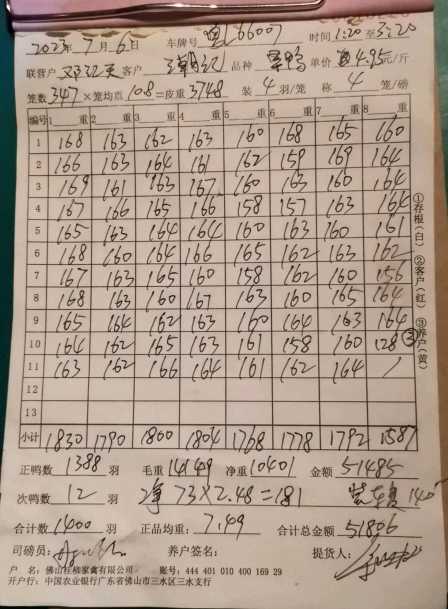 2023年 7月 6日 车牌号 66007 时间 1:20 至 3:20
联营户 客户 品种 单价 4.95元/斤
笼数 347 ×笼均重 10.8 =皮重 3748 装 4 羽/笼 称 4 笼/磅
编号 1 重 2 重 3 重 4 重 5 重 6 重 7 重 8 重
1 168 163 162 163 160 168 165 160
2 166 163 164 161 162 159 169 164
3 169 161 163 167 160 163 160 164
4 167 166 165 166 158 157 163 164
5 165 163 164 164 160 163 160 161
6 168 160 164 166 165 162 163 162
7 167 163 165 160 158 162 160 156
8 168 163 160 167 163 160 165 164
9 165 164 162 163 160 164 163 164
10 164 162 165 163 161 158 160 128 ③
11 163 162 166 164 161 162 164 /
12
13
小计 1830 1790 1800 1804 1768 1778 1792 1587
①存根(白) ②客户(红) ③养户(黄)
正鸭数 1388 羽 毛重 14149 净重 10401 金额 51485
次鸭数 12 羽 净 73×2.48=181
合计数 1400 羽 正品均重: 7.49 合计总金额 51806
司磅员: 养户签名: 提货人:
户 名: 佛山桂柳家禽有限公司 账号: 444 401 010 400 169 29
开户行: 中国农业银行广东省佛山市三水区三水支行